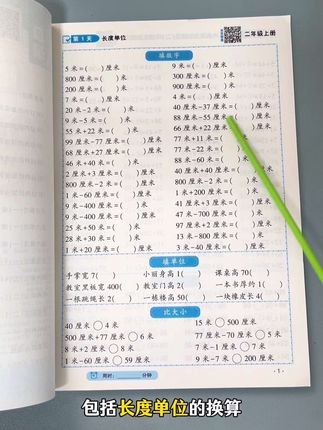 第 1 天 长度单位 二年级上册
填数字
5 米=( )厘米 9 米=( )厘米
800 厘米=( )米 300 厘米=( )米
200 厘米=( )米 900 厘米=( )米
7 米=( )厘米 4 米=( )厘米
20 米-2 米=( )米 40 厘米-37 厘米=( )厘米
9 米-5 米=( )米 88 厘米-55 厘米=( )厘米
55 米+22 米=( )米 66 厘米+22 厘米=( )厘米
99 厘米-77 厘米=( )厘米 77 米+11 米=( )米
66 厘米+27 厘米=( )厘米 77 米-22 米=( )米
46 米+40 米=( )米 88 米-60 米=( )米
2 厘米+3 厘米=( )厘米 40 厘米+
800 厘米-2 米=( )米 800 厘米-2 米=( )
1 米-60 厘米=( )厘米 41 米-13 米=(
4 米-80 厘米=( )厘米 3 米-200 厘米=(
9 米-400 厘米=( )米 47 米-700 厘米=(
25 米+50 米=( )米 97 厘米+2 厘米=(
28 米+30 米=( )米 1 米-40 厘米=(
1 米+20 厘米=( )厘米 3 米-40 厘米=( )
填单位
手掌宽 7( ) 小丽身高 1( ) 课桌高 70( )
教室黑板宽 400( ) 教室门高 2( ) 一本书厚约 1( )
一根跳绳长 2( ) 一栋楼高 50( ) 一块橡皮长 4( )
比大小
40 厘米○4 米 15 米○500 厘米
500 厘米+77 厘米○6 米 77 厘米-70 厘米○5 米
8 米+2 厘米○8 米 7 米-1 厘米○7 米
1 米-60 厘米○59 厘米 9 米-7 米○200 厘米
用时:______分钟 ·1·
包括长度单位的换算